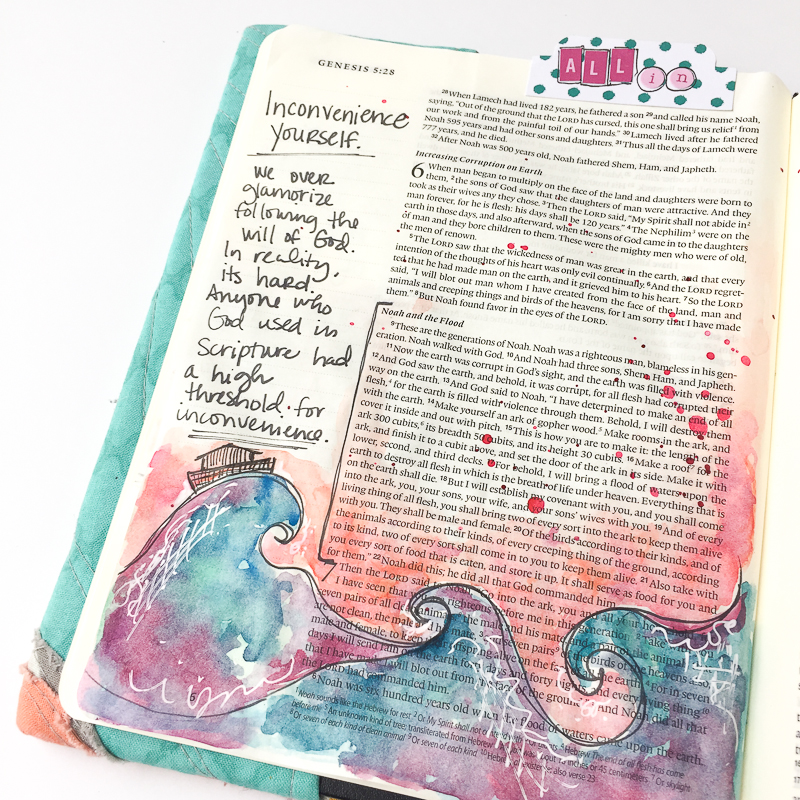 GENESIS 5:28
ALL in
Inconvenience
yourself.
we over
glamorize
following the
will of God.
In reality,
its hard.
Anyone who
God used in
Scripture had
a high
threshold for
inconvenience.
28When Lamech had lived 182 years, he fathered a son 29and called his name Noah,
saying, "Out of the ground that the LORD has cursed, this one shall bring us relief1 from
our work and from the painful toil of our hands." 30Lamech lived after he fathered
Noah 595 years and had other sons and daughters. 31Thus all the days of Lamech were
777 years, and he died.
32After Noah was 500 years old, Noah fathered Shem, Ham, and Japheth.
Increasing Corruption on Earth
6 When man began to multiply on the face of the land and daughters were born to
them, 2the sons of God saw that the daughters of man were attractive. And they
took as their wives any they chose. 3Then the LORD said, "My Spirit shall not abide in2
man forever, for he is flesh: his days shall be 120 years." 4The Nephilim3 were on the
earth in those days, and also afterward, when the sons of God came in to the daughters
of man and they bore children to them. These were the mighty men who were of old,
the men of renown.
5The LORD saw that the wickedness of man was great in the earth, and that every
intention of the thoughts of his heart was only evil continually. 6And the LORD regret-
ted that he had made man on the earth, and it grieved him to his heart. 7So the LORD
said, "I will blot out man whom I have created from the face of the land, man and
animals and creeping things and birds of the heavens, for I am sorry that I have made
them." 8But Noah found favor in the eyes of the LORD.
Noah and the Flood
9These are the generations of Noah. Noah was a righteous man, blameless in his gen-
eration. Noah walked with God. 10And Noah had three sons, Shem, Ham, and Japheth.
11Now the earth was corrupt in God's sight, and the earth was filled with violence.
12And God saw the earth, and behold, it was corrupt, for all flesh had corrupted their
way on the earth. 13And God said to Noah, "I have determined to make an end of all
flesh,4 for the earth is filled with violence through them. Behold, I will destroy them
with the earth. 14Make yourself an ark of gopher wood.5 Make rooms in the ark, and
cover it inside and out with pitch. 15This is how you are to make it: the length of the
ark 300 cubits,6 its breadth 50 cubits, and its height 30 cubits. 16Make a roof7 for the
ark, and finish it to a cubit above, and set the door of the ark in its side. Make it with
lower, second, and third decks. 17For behold, I will bring a flood of waters upon the
earth to destroy all flesh in which is the breath of life under heaven. Everything that is
on the earth shall die. 18But I will establish my covenant with you, and you shall come
into the ark, you, your sons, your wife, and your sons' wives with you. 19And of every
living thing of all flesh, you shall bring two of every sort into the ark to keep them alive
with you. They shall be male and female. 20Of the birds according to their kinds, and of
the animals according to their kinds, of every creeping thing of the ground, according
to its kind, two of every sort shall come in to you to keep them alive. 21Also take with
you every sort of food that is eaten, and store it up. It shall serve as food for you and
for them." 22Noah did this; he did all that God commanded him.
Then the LORD said to Noah, "Go into the ark, you and all your household,
I have seen that you are righteous before me in this generation. 2Take with you
seven pairs of all clean animals, the male and his mate, and a pair of the animals
are not clean, the male and his mate, 3and seven pairs of the birds of the heavens also,
male and female, to keep their offspring alive on the face of all the earth. 4For in seven
days I will send rain on the earth forty days and forty nights, and every living thing
that I have made I will blot out from the face of the ground." 5And Noah did all that
the LORD had commanded him.
6Noah was six hundred years old when the flood of waters came upon the earth.
6